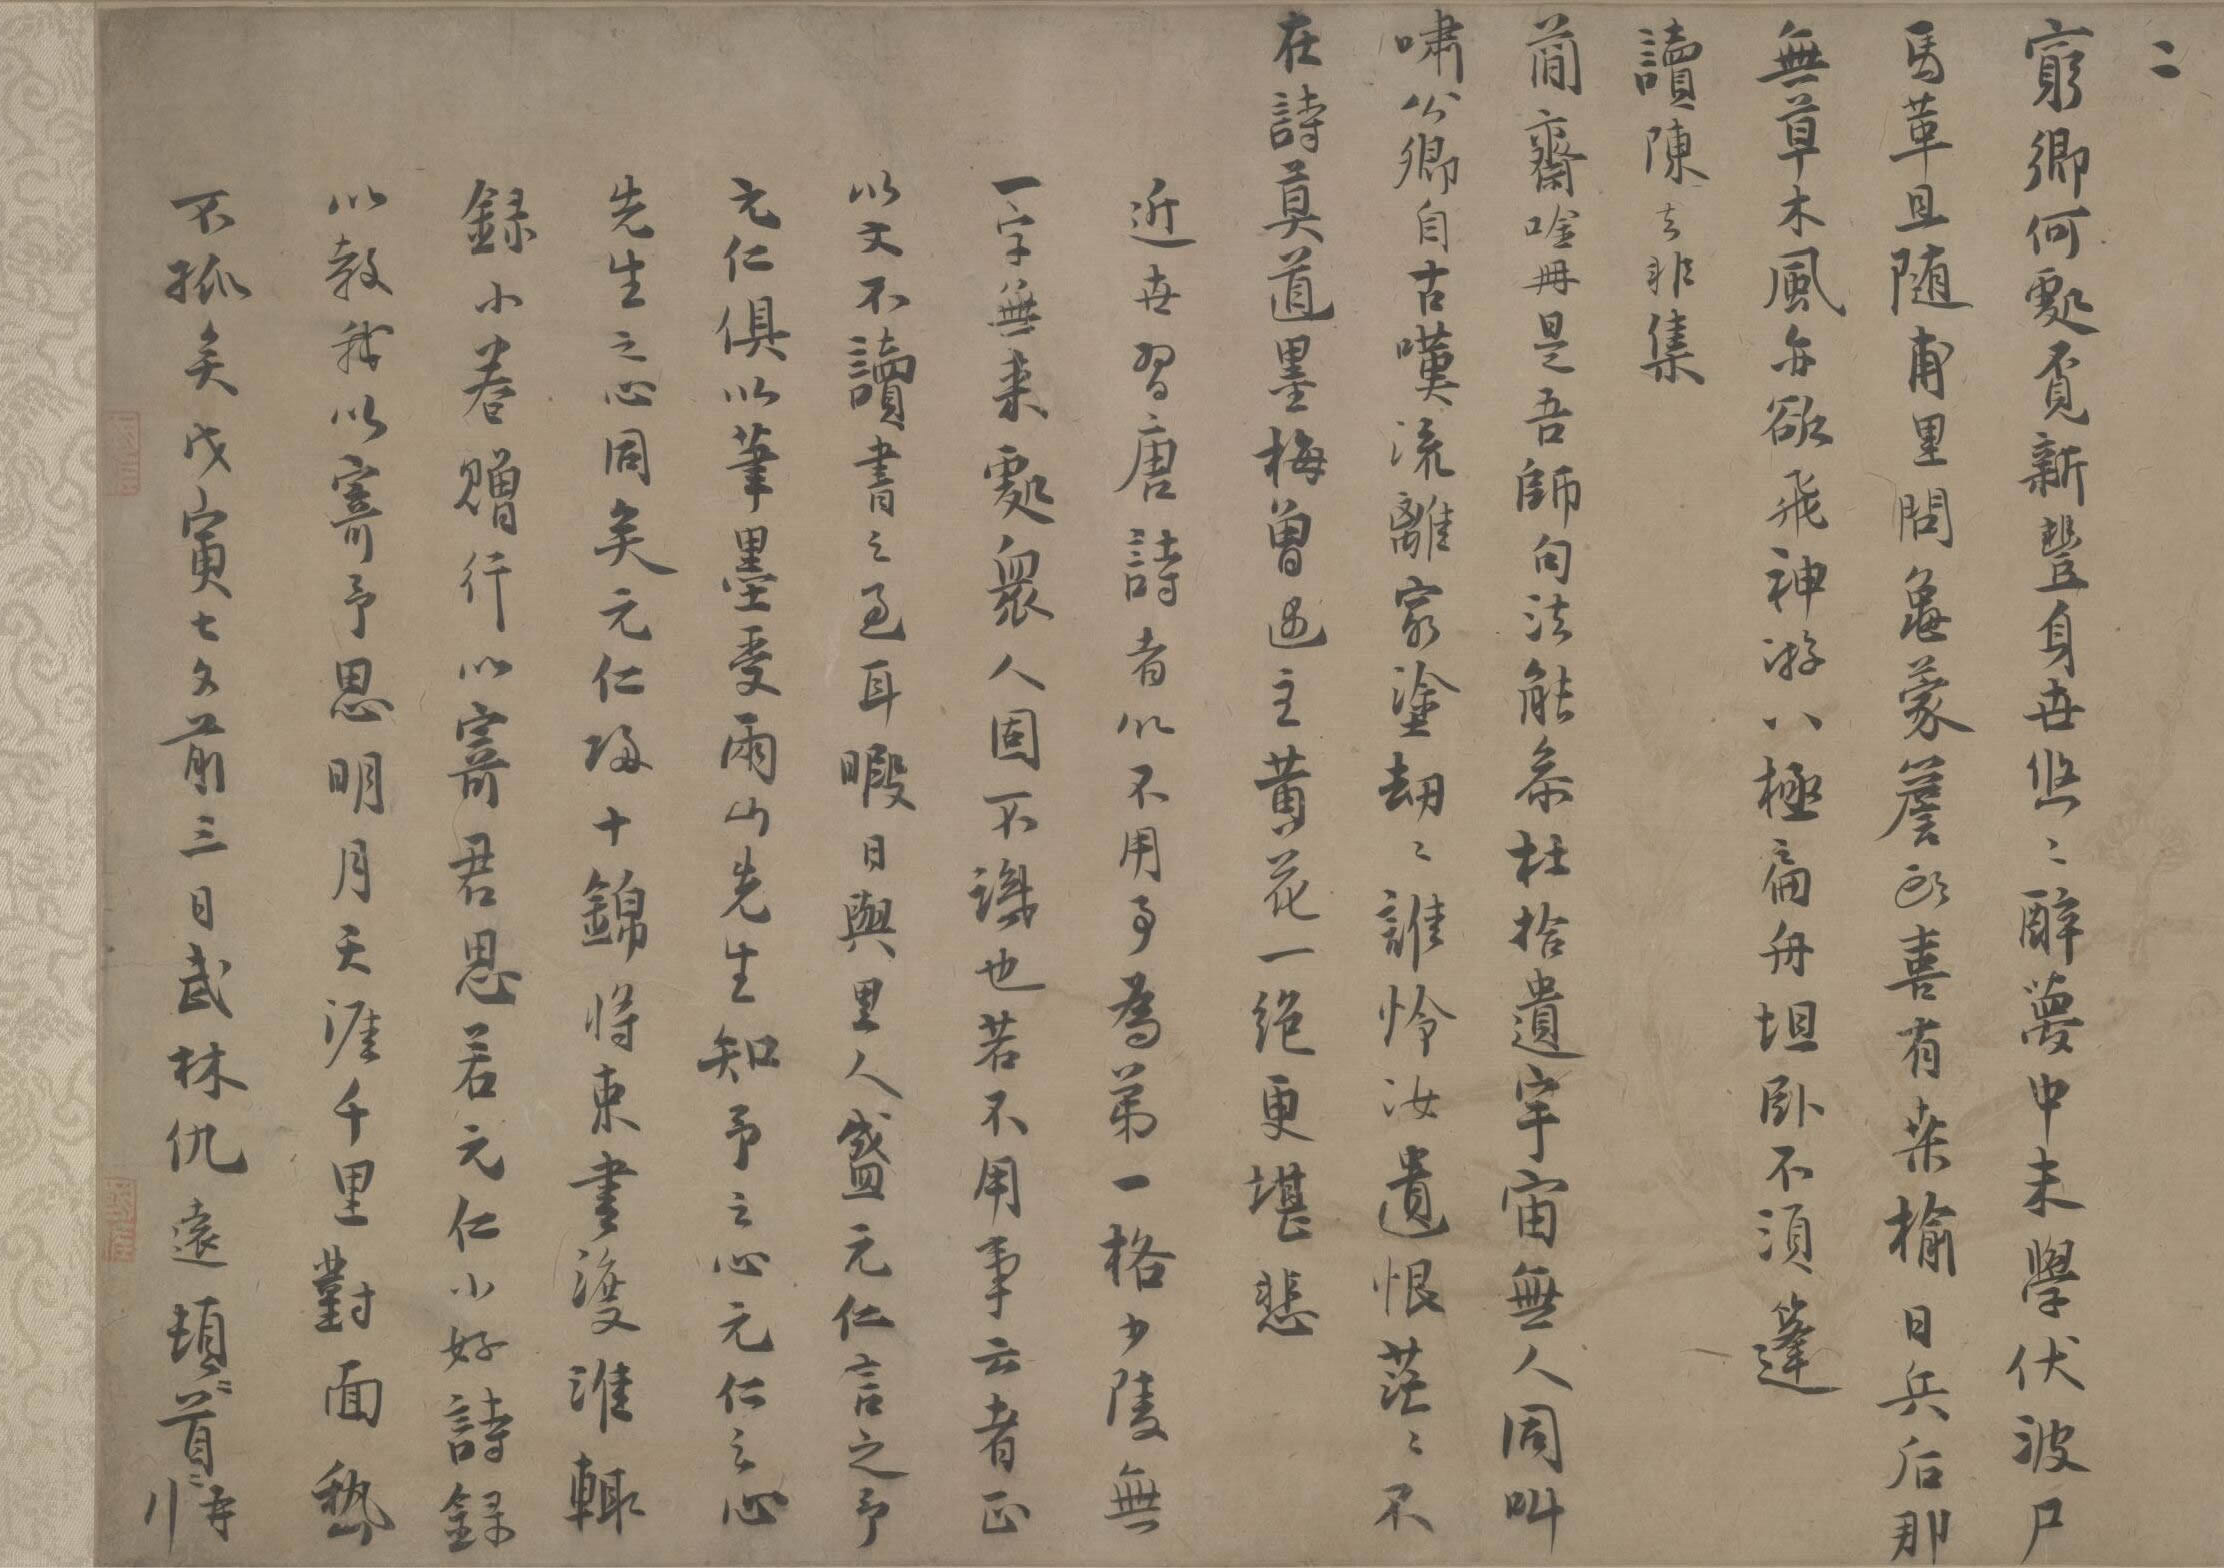 二
窮鄉何處覓新豐身世悠〻醉夢中未學伏波尸
馬革且随甫里問龜蒙簷頭喜有桒榆日兵后那
無草木風亦欲飛神游八極扁舟坦卧不須篷
讀陳去非集
簡齋唫冊是吾師句法能參杜拾遺宇宙無人同叫
嘯公卿自古嘆流離窮塗刼〻誰怜汝遺恨茫〻不
在詩莫道墨梅曾遇主黄花一絶更堪悲
近世習唐詩者以不用事為第一格少陵無
一字無来處衆人固不識也若不用事云者正
以文不讀書之過耳暇日與里人盛元仁言之予
元仁俱以筆墨受雨山先生知予之心元仁之心
先生之心同矣元仁歸十錦將束書渡淮輒
録小卷贈行以寄君思若元仁小好詩録
以教我以寄予思明月天涯千里對面
不孤矣戊寅七夕前三日武林仇遠頓〻首〻